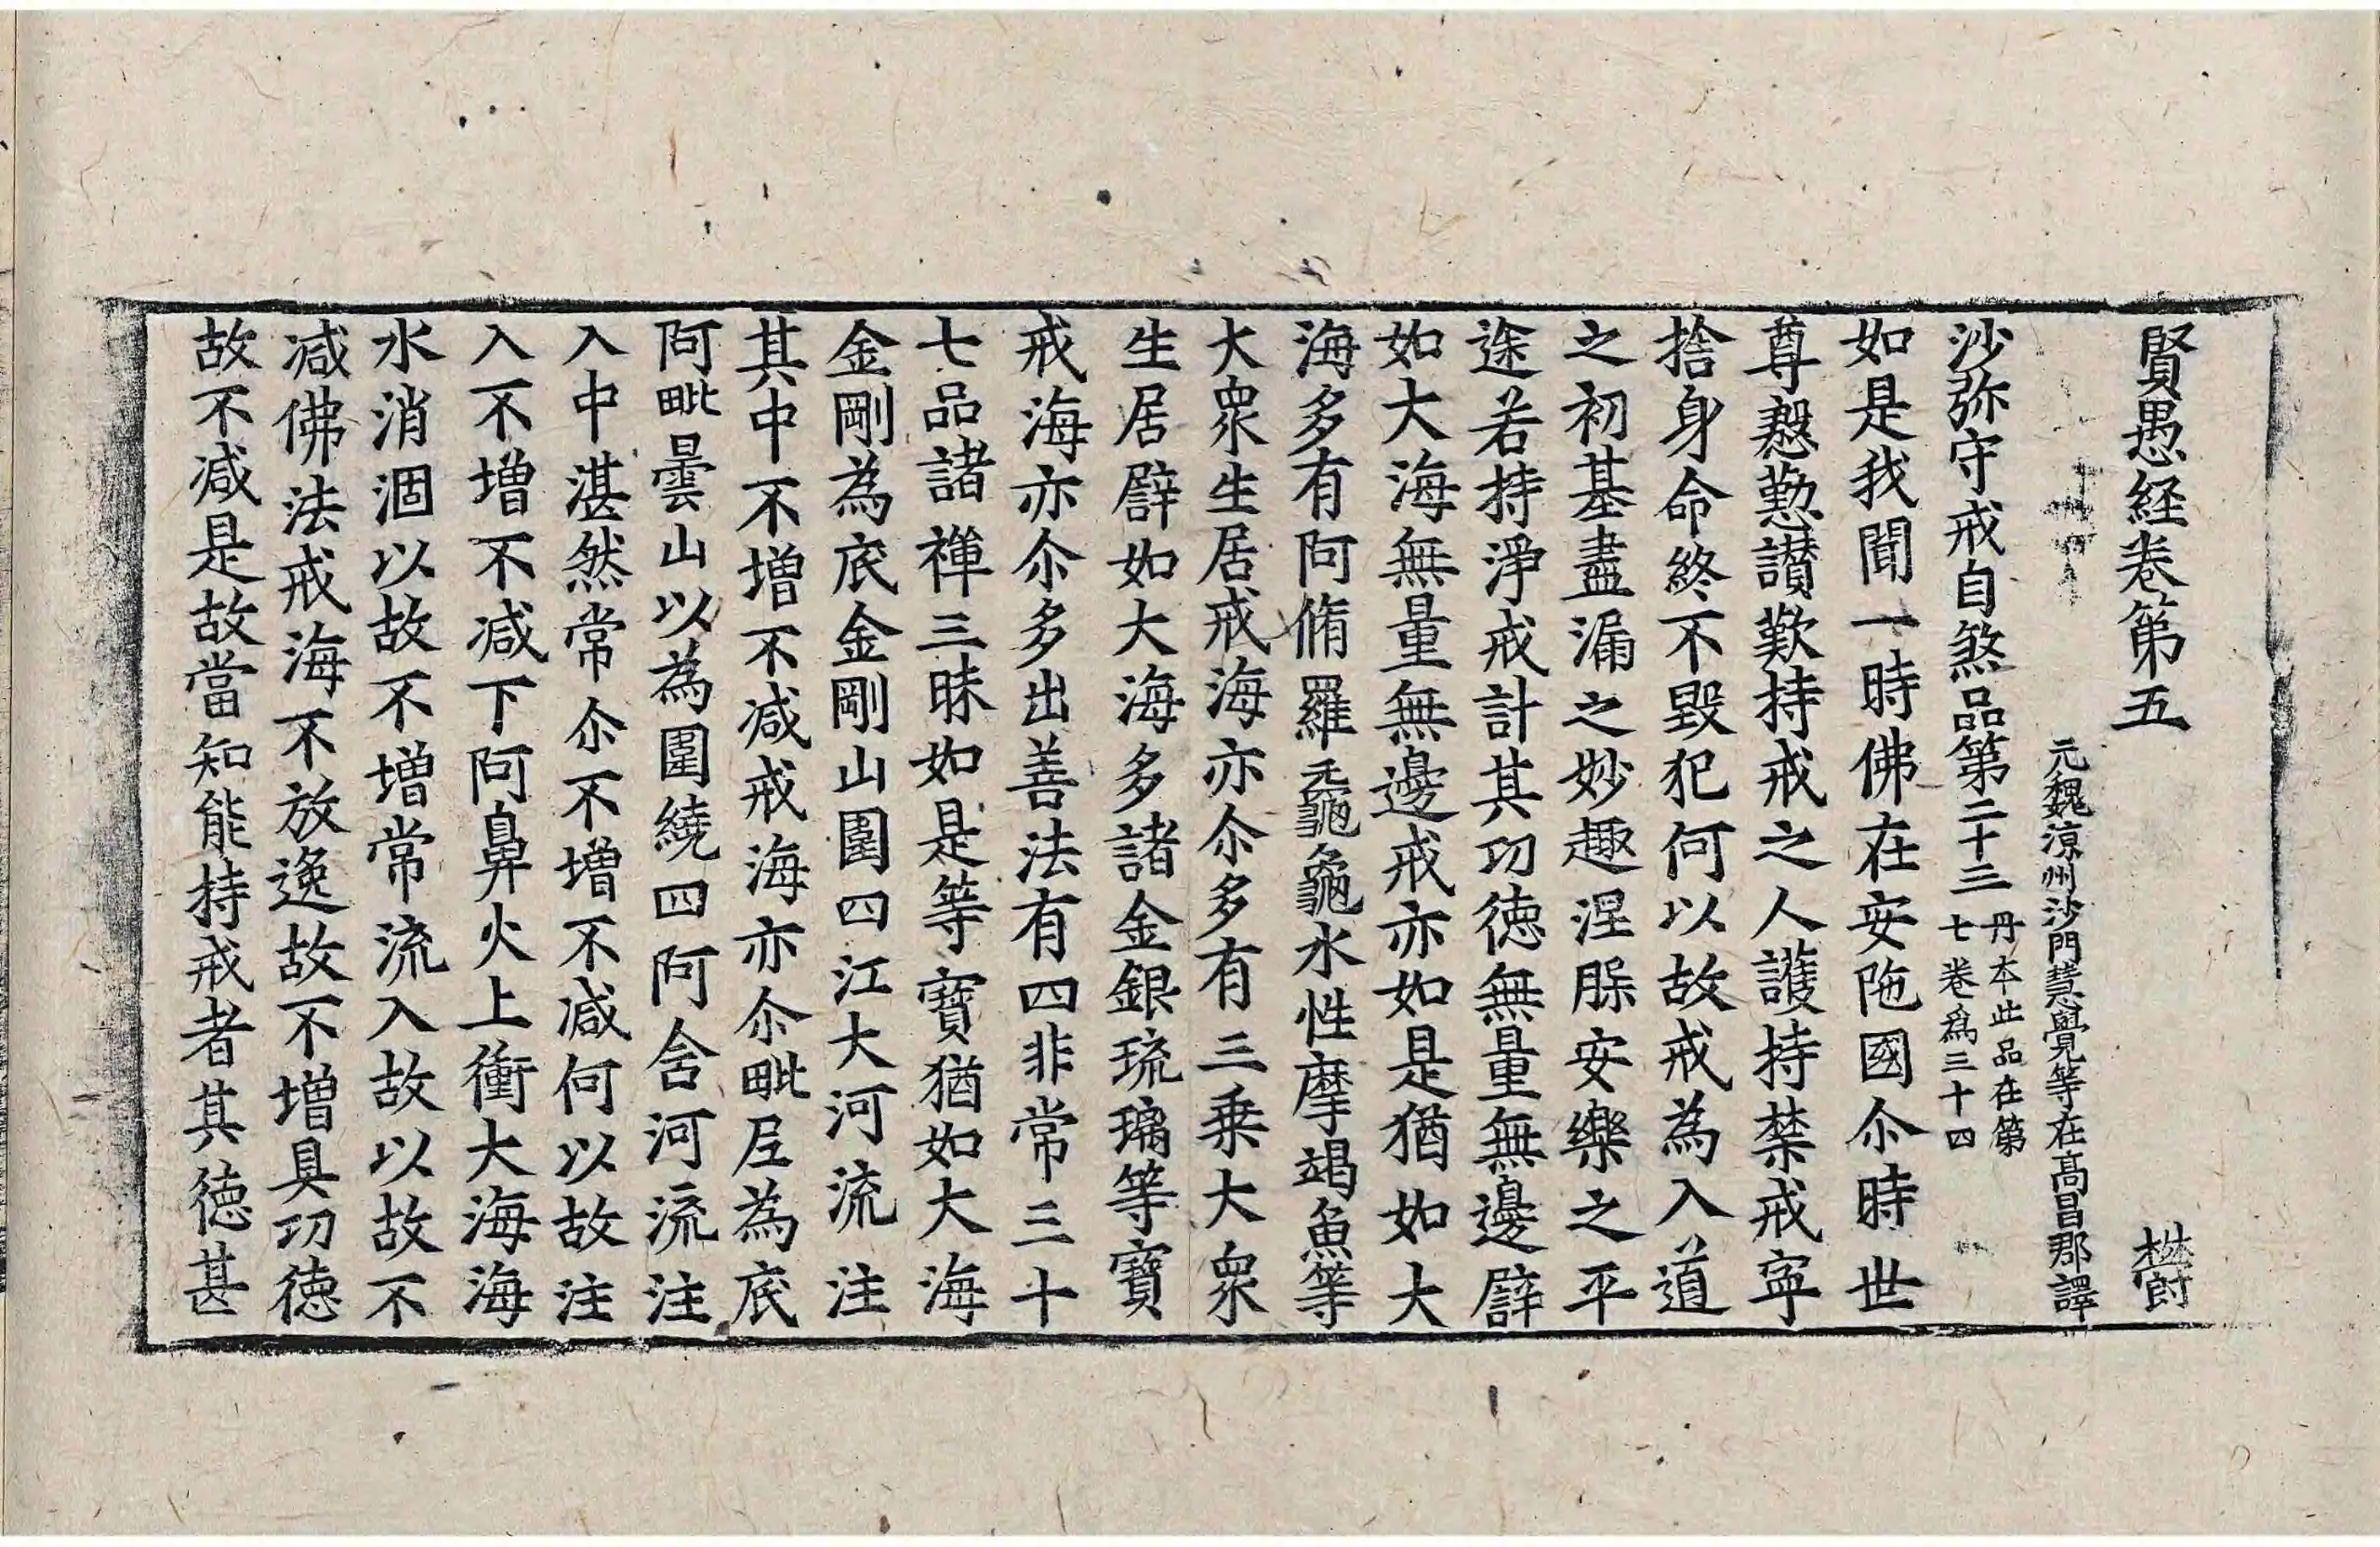 賢愚経卷第五 欝
元魏涼州沙門慧覺等在髙昌郡譯
沙弥守戒自煞品第二十三 丹本此品在第
七卷爲三十四
如是我聞一時佛在安陁國尒時世
尊慇懃讃歎持戒之人護持禁戒寧
捨身命終不毀犯何以故戒為入道
之初基盡漏之妙趣涅槃安樂之平
途若持淨戒計其功徳無量無邊譬
如大海無量無邊戒亦如是猶如大
海多有阿脩羅黿龜水性摩竭魚等
大衆生居戒海亦尒多有三乗大衆
生居譬如大海多諸金銀琉璃等寶
戒海亦尒多出善法有四非常三十
七品諸禪三昧如是等寶猶如大海
金剛為底金剛山圍四江大河流注
其中不増不减戒海亦尒毗尼為底
阿毗曇山以為圍繞四阿含河流注
入中湛然常尒不増不减何以故注
入不増不减下阿鼻火上衝大海海
水消涸以故不増常流入故以故不
减佛法戒海不放逸故不増具功徳
故不减是故當知能持戒者其徳甚